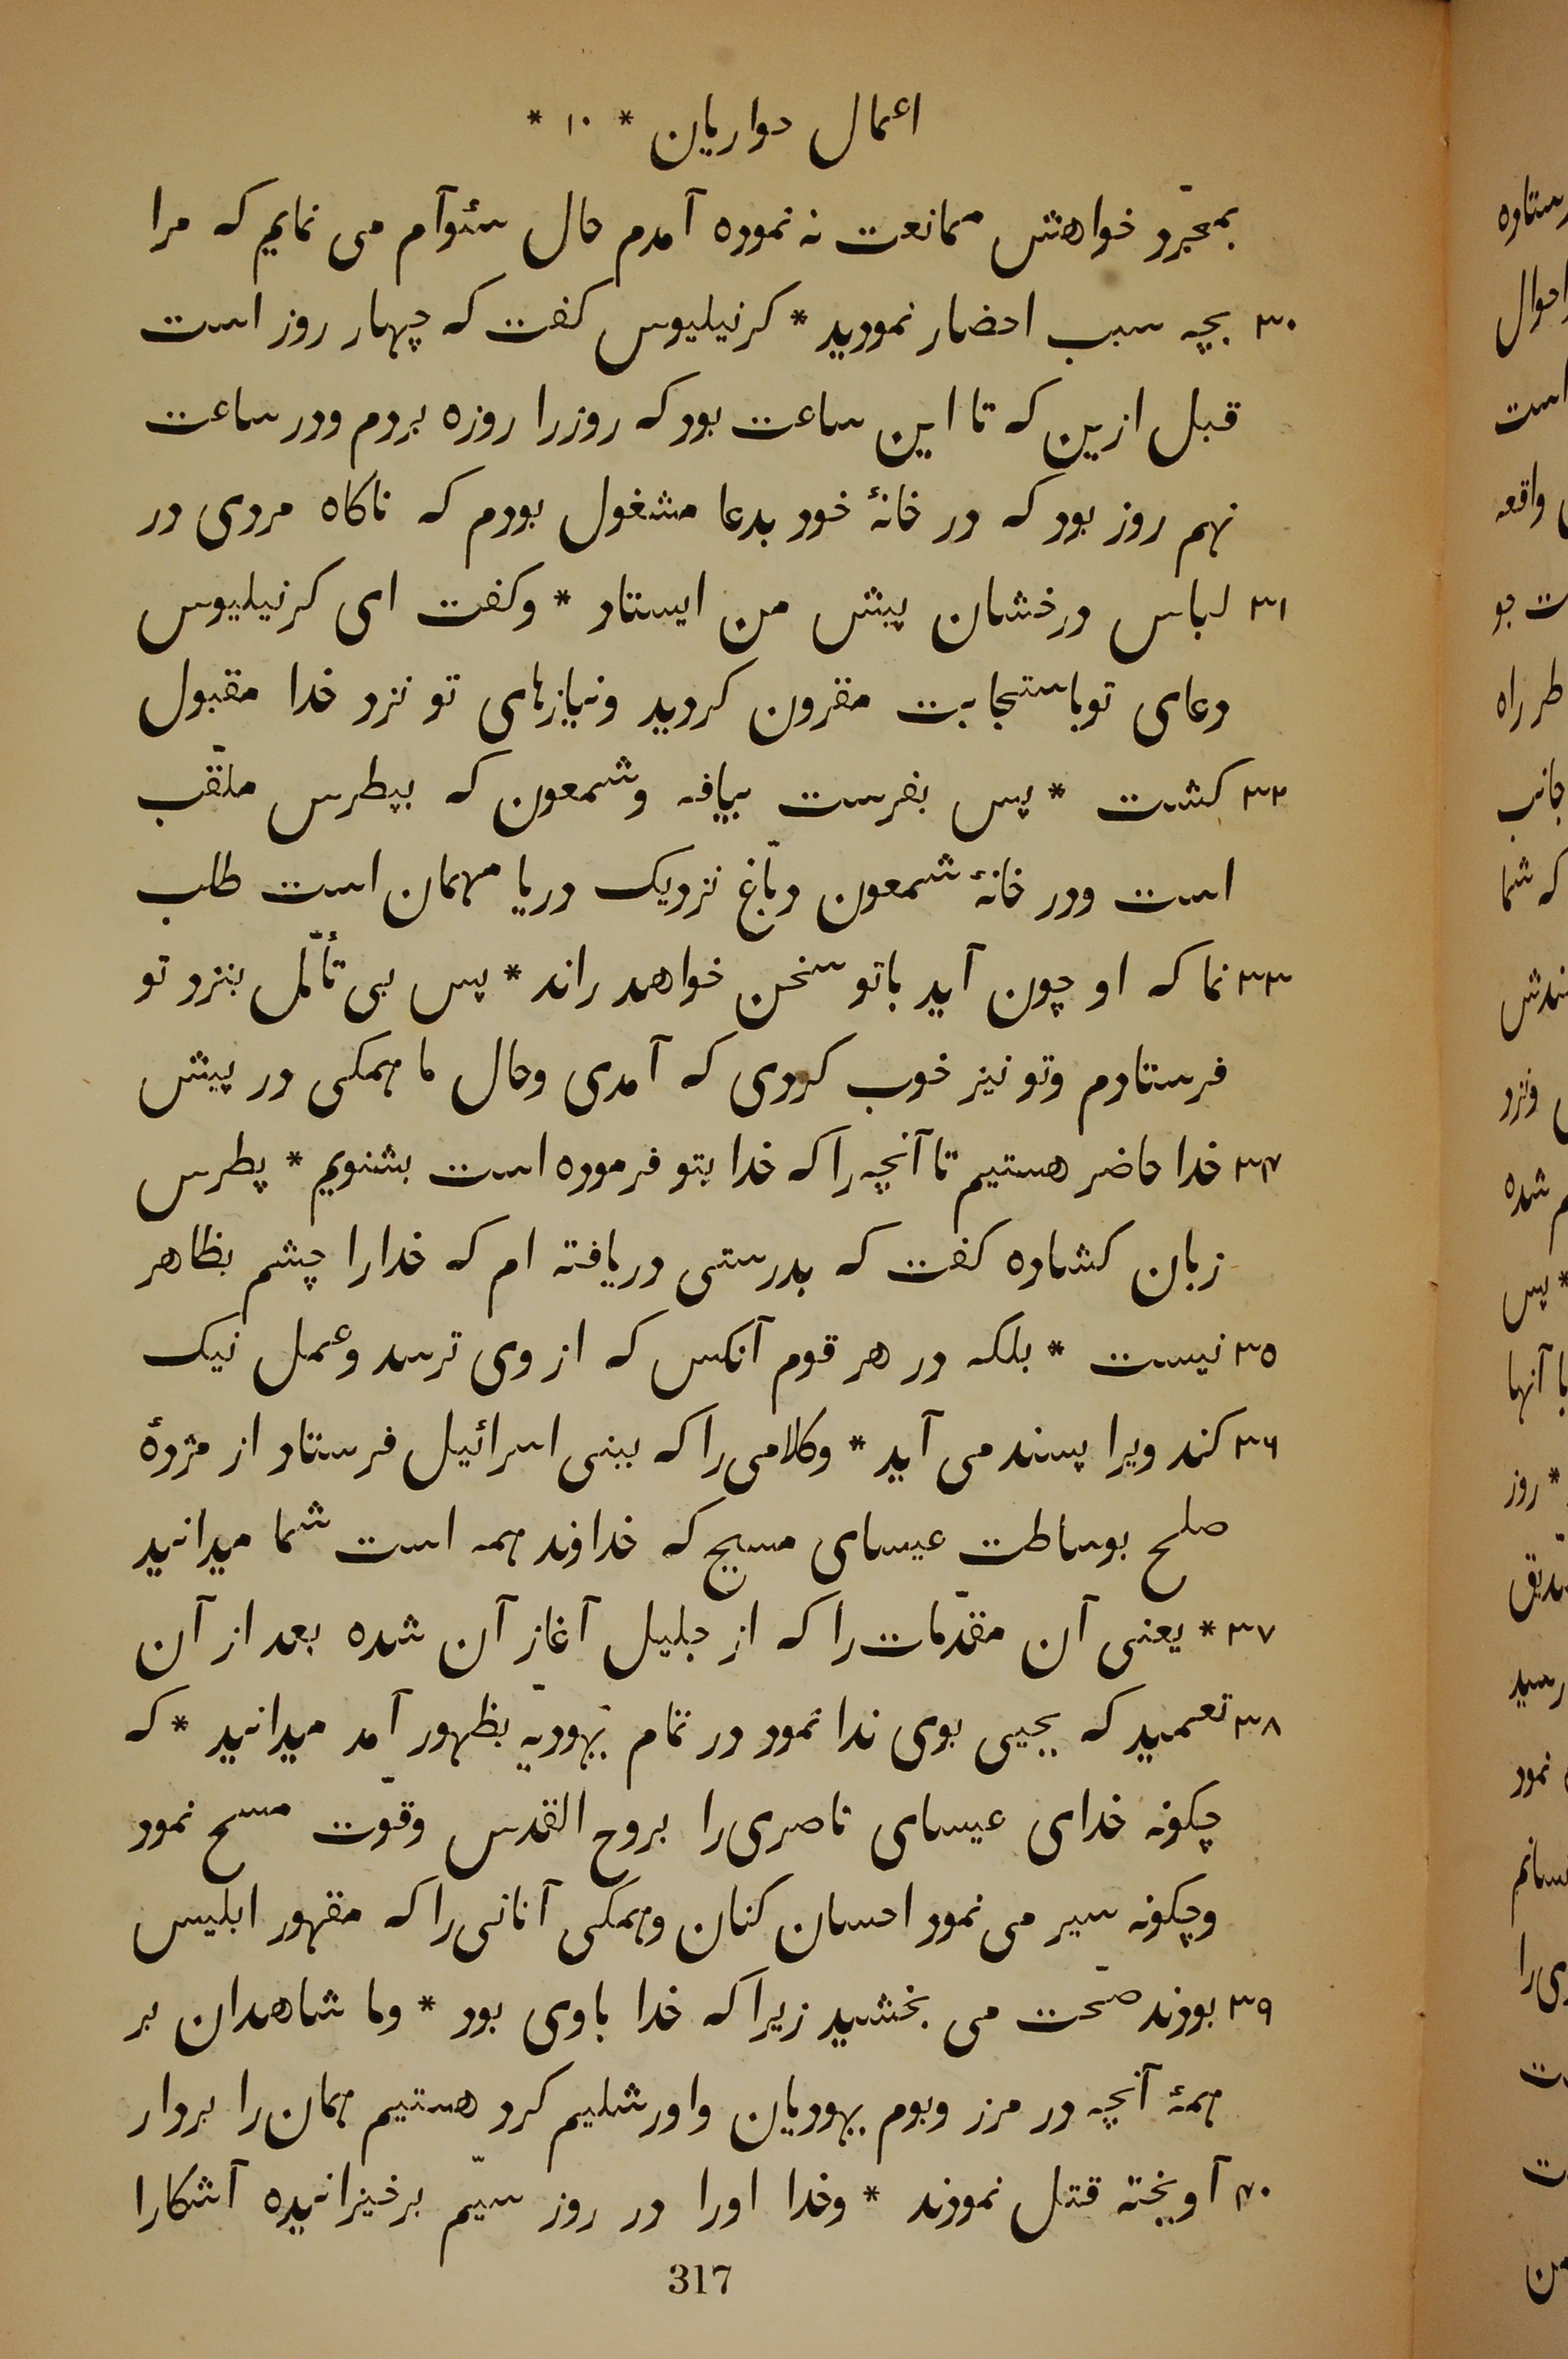 اعمال حواریان * ۱۰ *
بمجرّد خواهش ممانعت نه نموده آمدم حال سئوآم می نمایم که مرا
۳۰ بچه سبب احضار نمودید * کرنیلیوس کفت که چهار روز است
قبل ازین که تا این ساعت بود که روز را روزه بردم ودر ساعت
نهم روز بود که در خانهٔ خود بدعا مشغول بودم که ناکاه مردی در
۳۱ لباس درخشان پیش من ایستاد * وکفت ای کرنیلیوس
دعای تو باستجابت مقرون کردید ونیازهای تو نزد خدا مقبول
۳۲ کشت * پس بفرست بیافه وشمعون که بپطرس ملقّب
است ودر خانهٔ شمعون دبّاغ نزدیک دریا مهمان است طلب
۳۳ نما که او چون آید باتو سخن خواهد راند * پس بی تأمّل بنزد تو
فرستادم وتو نیز خوب کردی که آمدی وحال ما همکی در پیش
۳۴ خدا حاضر هستیم تا آنچه را که خدا بتو فرموده است بشنویم * پطرس
زبان کشاده کفت که بدرستی دریافته ام که خدارا چشم بظاهر
۳۵ نیست * بلکه در هر قوم آنکس که از وی ترسد وعمل نیک
۳۶ کند ویرا پسند می آید * وکلامی را که ببنی اسرائیل فرستاد از مژدهٔ
صلح بوساطت عیسای مسیح که خداوند همه است شما میدانید
۳۷ * یعنی آن مقدّمات را که از جلیل آغاز آن شده بعد از آن
۳۸ تعمید که یحیی بوی ندا نمود در تمام یهودیّه بظهور آمد میدانید * که
چکونه خدای عیسای ناصری را بروح القدس وقوّت مسح نمود
وچکونه سیر می نمود احسان کنان وهمکی آنانی را که مقهور ابلیس
۳۹ بودند صحّت می بخشید زیرا که خدا باوی بود * وما شاهدان بر
همهٔ آنچه در مرز وبوم یهودیان واورشلیم کرد هستیم همان را بردار
۴۰ آویخته قتل نمودند * وخدا اورا در روز سیّم برخیزانیده آشکارا
317